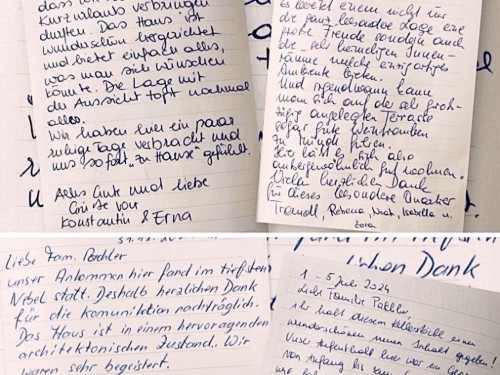 dass wir
Kurzurlaub verbringen
durften. Das Haus ist
wunderschön hergerichtet
und bietet einfach alles,
was man sich wünschen
könnte. Die Lage mit
der Aussicht toppt nochmal
alles.
Wir haben hier ein paar
ruhige Tage verbracht und
uns sofort „zu Hause" gefühlt.
Alles Gute und liebe
Grüße von
Konstantin & Erna
es bietet einem nicht nur
die ganz besondere Lage eine
große Freude sondern auch
die
räume welche einzigartiges
Ambiente bieten.
Und irgendwann kann
man sich auf der sehr groß-
zügig angelegten Terrasse
sogar gute Weintrauben
zu Munde führen.
Hier läßt es sich also
außergewöhnlich gut wohnen.
Vielen herzlichen Dank
für dieses besondere Quartier
Traudl, Rebecca, Noah, Isabella u.
Zora
Liebe Fam.
unser Ankommen hier fand im tiefsten
Nebel statt. Deshalb herzlichen Dank
für die
Das Haus ist in einem hervorragenden
architektonischen Zustand. Wir
waren sehr begeistert.
lichen Dank
1 - 5 Juli 2024
Liebe Familie
ihr habt diesem
wunderschönen neuen Inhalt gegeben!
Unser Aufenthalt hier war ein
von Anfang bis